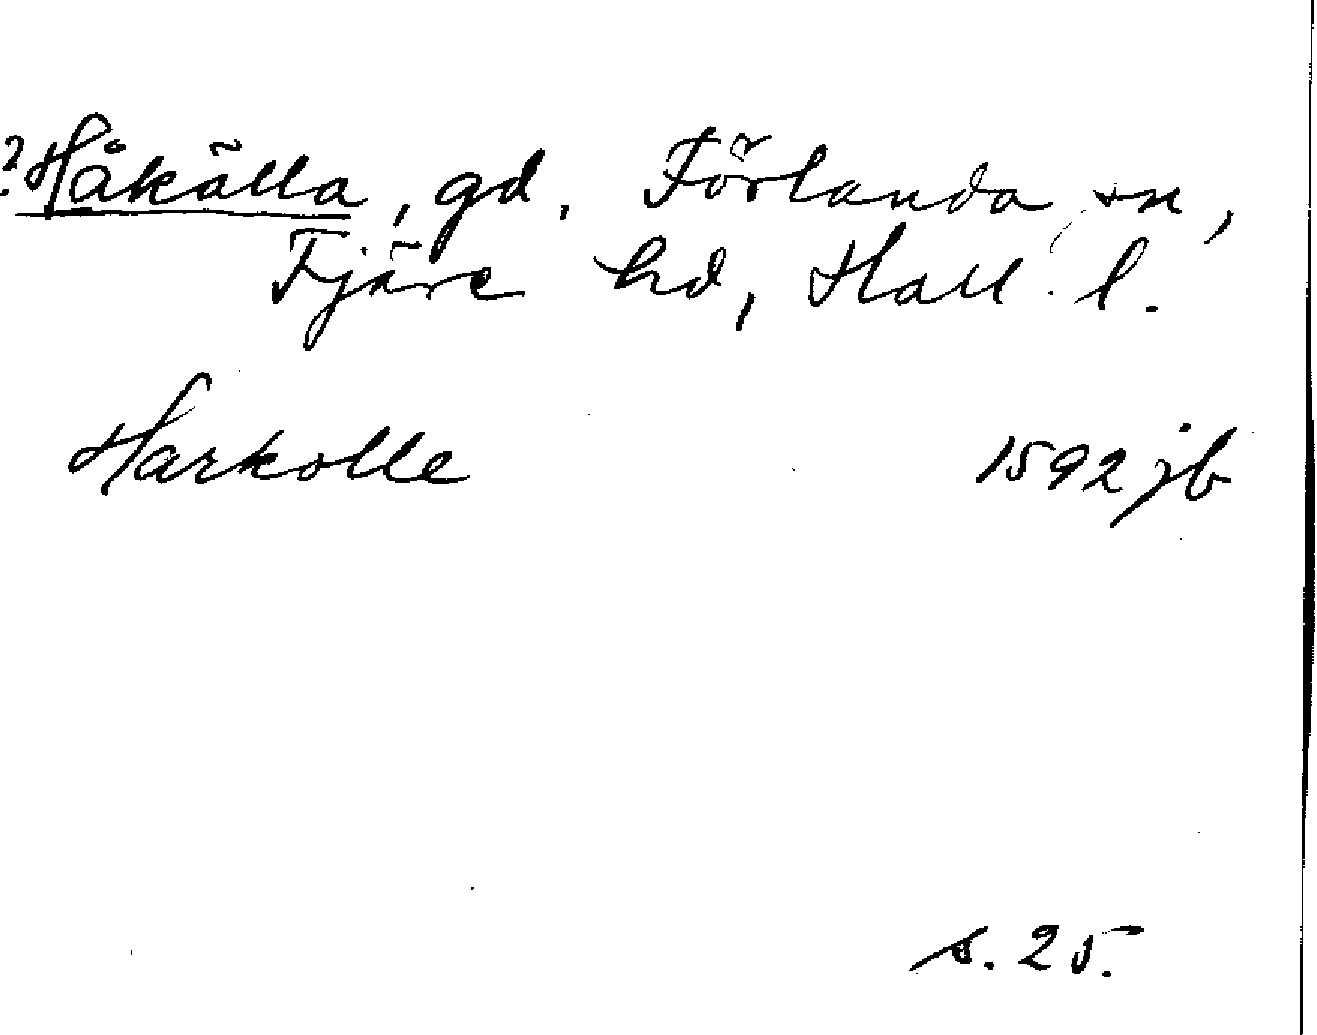 ? Håkälla, gd. Förlanda sn,
Fjäre hd, Hall. l.
Harkolle 1592 jb
s. 25.